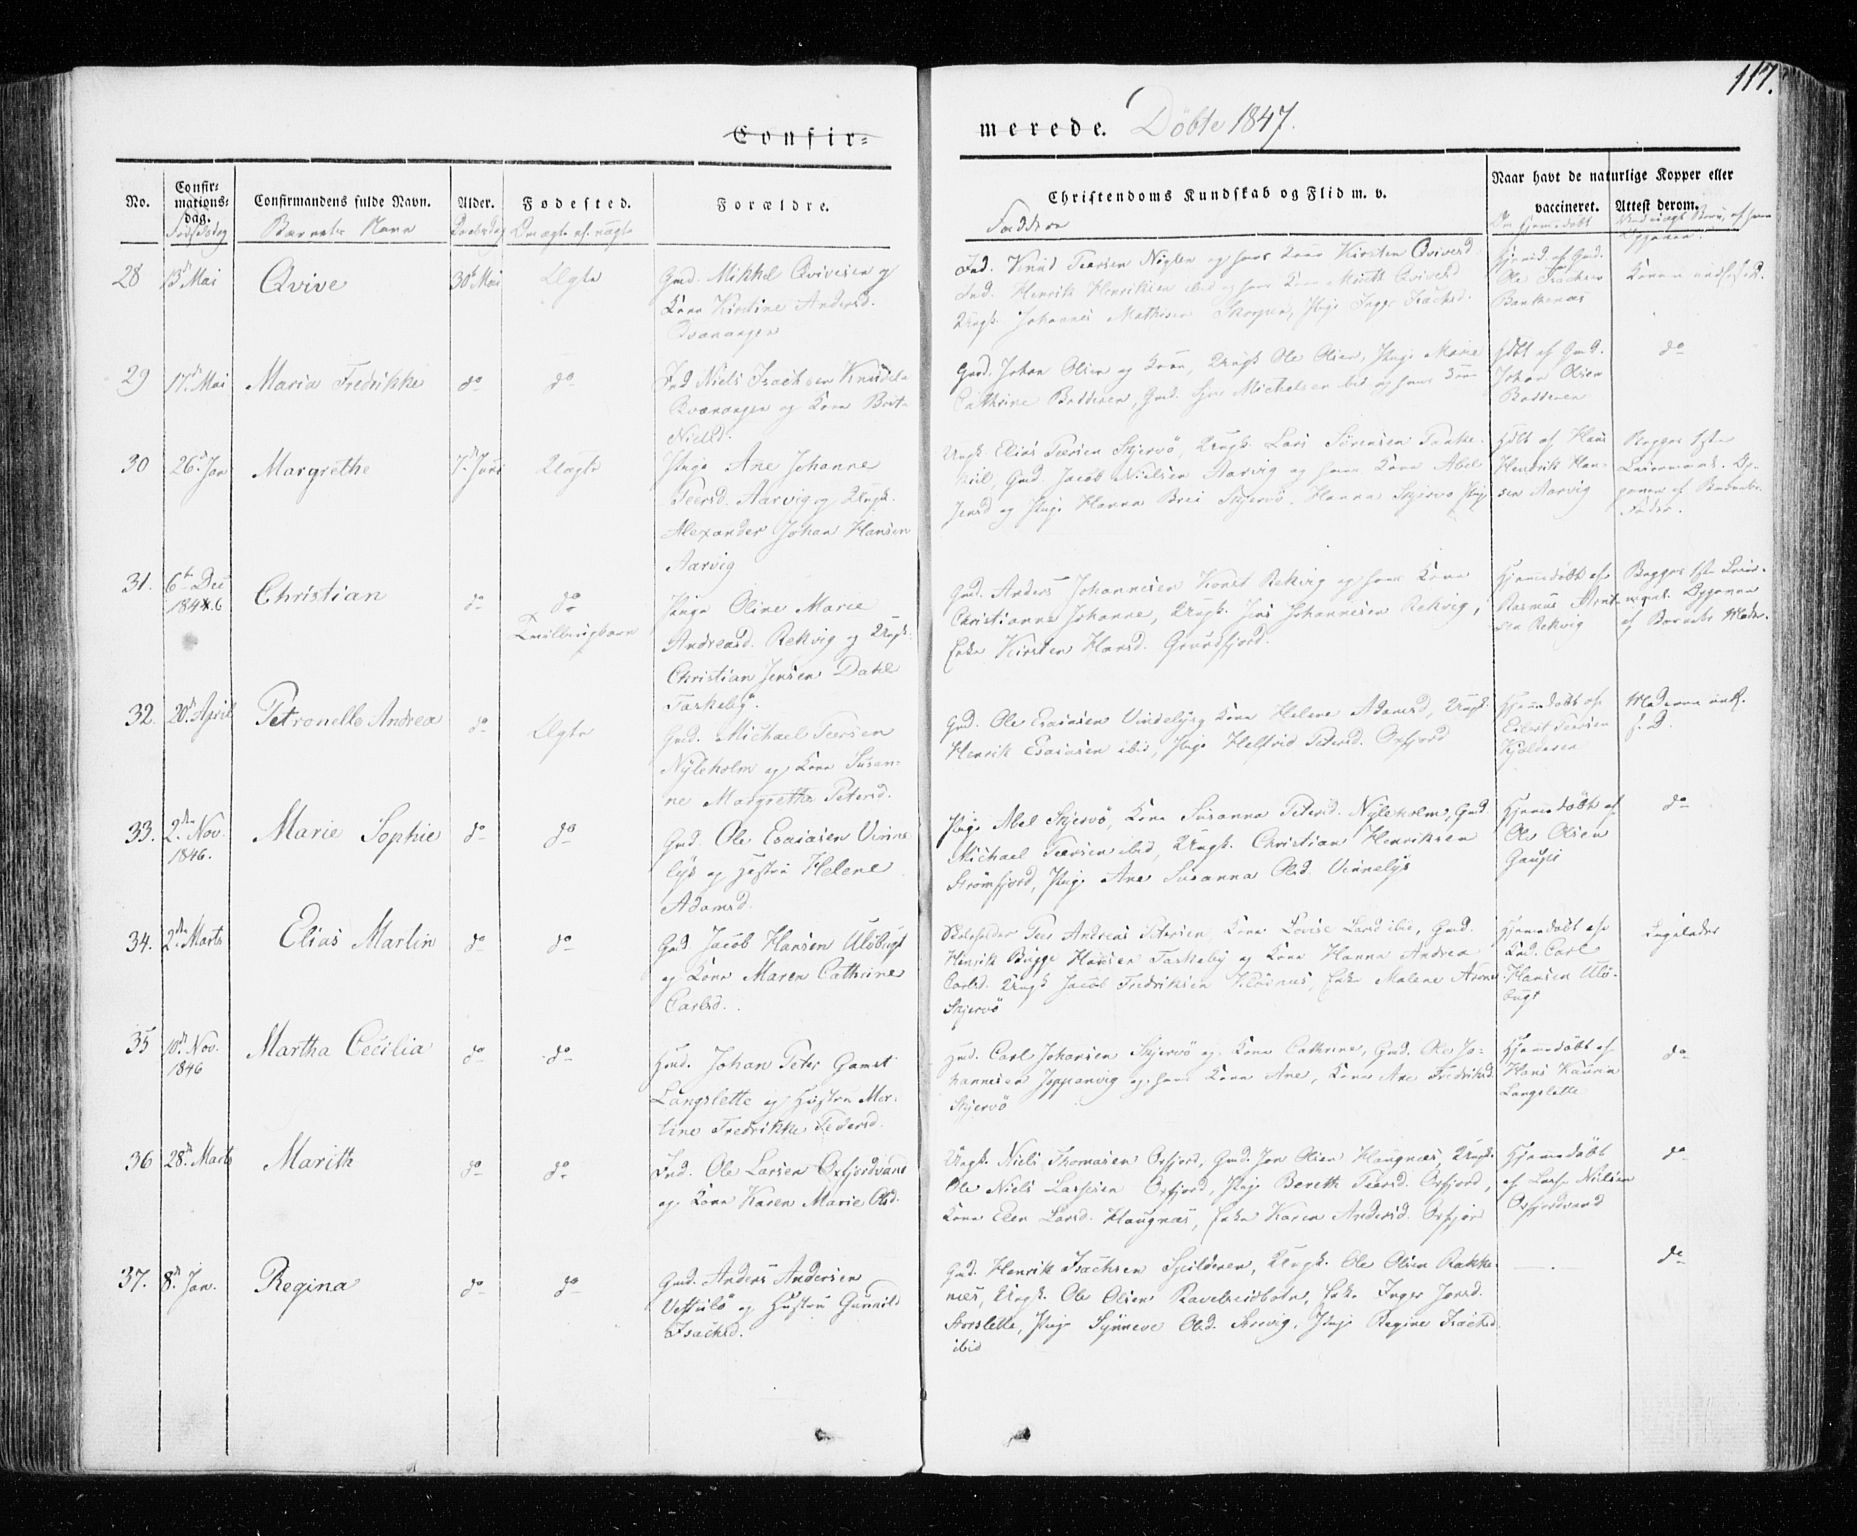 117.
Confir=
merede. Döbte 1847.
No.
Confir=
mations=
dag.
Födselsdag
Confirmandens fulde Navn.
Barnets Navn
Alder.
Daabsdag
Fodested.
Forældre.
Christendoms Kundskab og Flid m. v.
Faddere
Naar havt de naturlige Kopper eller
vaccineret.
Attest derom.
28
13 Mai
Qvive
30te Mai
Ægte
Gmd. Mikkel Qvivesen og
Kone Kirstine Andersd.
Qvænangen
Ind. Knud Peersen og hans Kone Kirsten Qvivesd.
Ind. Henrik Henriksen ibid og hans Kone Marith Qvivesd
Ungk. Johannes Mathisen Skorpen, Pige Inger Isachsd.
Ole Isachsen
29
17de Mai
Maria Fredrikke
do
do
Ind Niels Isachsen
Qvænangen og Kone Berit
Nielsd.
Gmd. Johan Olsen og Kone, Ungk Ole Olsen, Pige Marie
Cathrine Badderen, Gmd. Michelsen ibid og hans Kone
Hdbt af Gmd.
Johan Olsen
Badderen
do
30
26de Jan
Margrethe
7de Juni
Uægte
Pige Ane Johanne
Peersd. Aarvig og Ungk.
Alexander Johan Hansen
Aarvig
Ungk. Elias Peersen Skjervö Ungk. Lars Sörensen
Gmd. Jacob Nielsen Aarvig og hans Kone Abel
Jensd og Pige Hanna Brei Skjervö. Hanna Skjervö Pige
Hdbt af Hans
Hendrik Han-
sen Aarvig
Begges 1ste
Leiermaal. Op-
given af Barnets
Fader.
31.
6te Dec
1846
Christian
do
do
Tvillingbarn
Pige Oline Marie
Andreasd. Rekvig og Ungk.
Christian Jensen Dahl
Taskeby.
Gmd. Anders Johannesen Rekvig og hans Kone
Christianne Johanne, Ungk. Jens Johannesen Rekvig,
Enke Kirsten Hansd. Grundfjord.
Hjemmedöbt af
Rasmus Arnt-
sen Rekvig
Begges 1ste Leier-
maal. Opgiven
af Barnets Moder.
32.
20de April
Petronelle Andrea
do
Ægte
Gmd. Michael Peersen
Nyleholm og Kone Susan-
ne Margrethe Petersd.
Gmd. Ole Esaiasen Vindelys og Kone Helene Adamsd, Ungk.
Henrik Esaiasen ibid, Pige Helfrid Petersd. Oxfjord
Hjemmedöbt af
Eilert Peersen
Kjelderen
33.
2den Nov.
1846.
Marie Sophie
do
do
Gmd. Ole Esaiasen Vinne
lys og Hustru Helene
Adamsd.
Pige Abel Skjervö, Kone Susanna Petersd. Nyleholm, Gmd
Michael Peersen ibid, Ungk. Christian Henriksen
Strömfjord, Pige Ane Susanna Olsd. Vinnelys
Hjemmedöbt af
Ole Olsen
Gausis
do
34.
2den Marts
Elias Martin
do
do
Gmd Jacob Hansen Ulöbugt
og Kone Maren Cathrine
Carlsd.
Skoleholder Peer Andreas Petersen, Kone Lovise Lund ibid, Gmd.
Henrik Bugge Hansen Taskeby og Kone Hanna Andrea
Carlsd. Ungk Jacob Fredriksen, Enke Malene Arons
Skjervö
Hjemmedöbt af
Ind. Carl
Hansen Ulö-
bugt
35
10de Nov.
1846
Martha Cecilia
do
do
Hmd. Johan Peter Gamst
Langslette og Hustru Mor-
tine Fredrikke Pedersd.
Hmd. Carl Johansen Skjervö og Kone Cathrine, Gmd. Ole Jo-
hannesen Jeppervig og hans Kone Ane, Kone Ane Fredriksd
Skjervö
Hjemmedöbt af
Hans
Langslette
do
36
28de Marts
Marith
do
do
Ind. Ole Larsen Oxfjordvand
og Kone Karen Marie Olsd.
Ungk. Niels Thomasen Oxfjord, Gmd. Jon Olsen Haugnæs, Ungk.
Ole Niels Larsen Oxfjord, Pige Bereth Peersd. Oxfjord,
Kone Elen Larsd. Haugnæs, Enke Karen Andersd. Oxfjor
Hjemmedöbt
af Lars Nielsen
Oxfjordvand
do
37.
8de Jan.
Regina
do
do
Gmd. Anders Andersen
og Hustru Gunnild
Isachsd.
Gmd. Henrik Isachsen Spilderen, Ungk. Ole Olsen Rakke
næs, Ungk. Ole Olsen Ravelseidbotn, Enke Inger Jonsd.
Storslette, Pige Synneve Olsd. Storvig, Pige Regine Isachsd
ibid
do